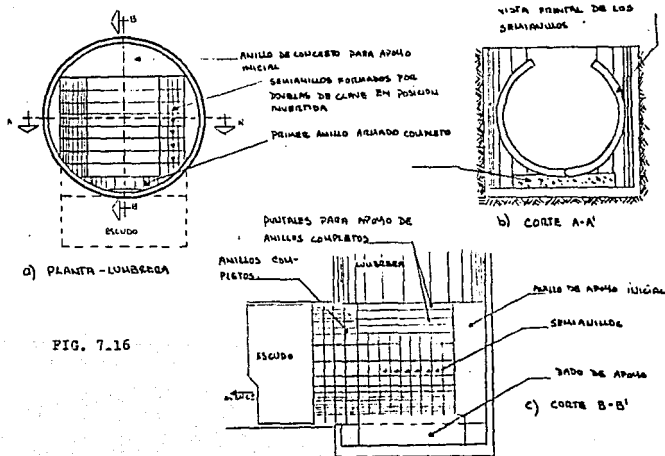 B
ANILLO DE CONCRETO PARA APOYO
INICIAL
SEMIANILLOS FORMADOS POR
DOVELAS DE CLAVE EN POSICION
INVERTIDA
A
A'
PRIMER ANILLO ARMADO COMPLETO
B
ESCUDO
a) PLANTA-LUMBRERA
VISTA FRONTAL DE LOS
SEMIANILLOS
b) CORTE A-A'
PUNTALES PARA APOYO DE
ANILLOS COMPLETOS
ANILLOS COM-
PLETOS.
LUMBRERA
ANILLO DE APOYO INICIAL
SEMIANILLOS
ESCUDO
DADO DE APOYO
AVANCE
c) CORTE B-B'
FIG. 7.16